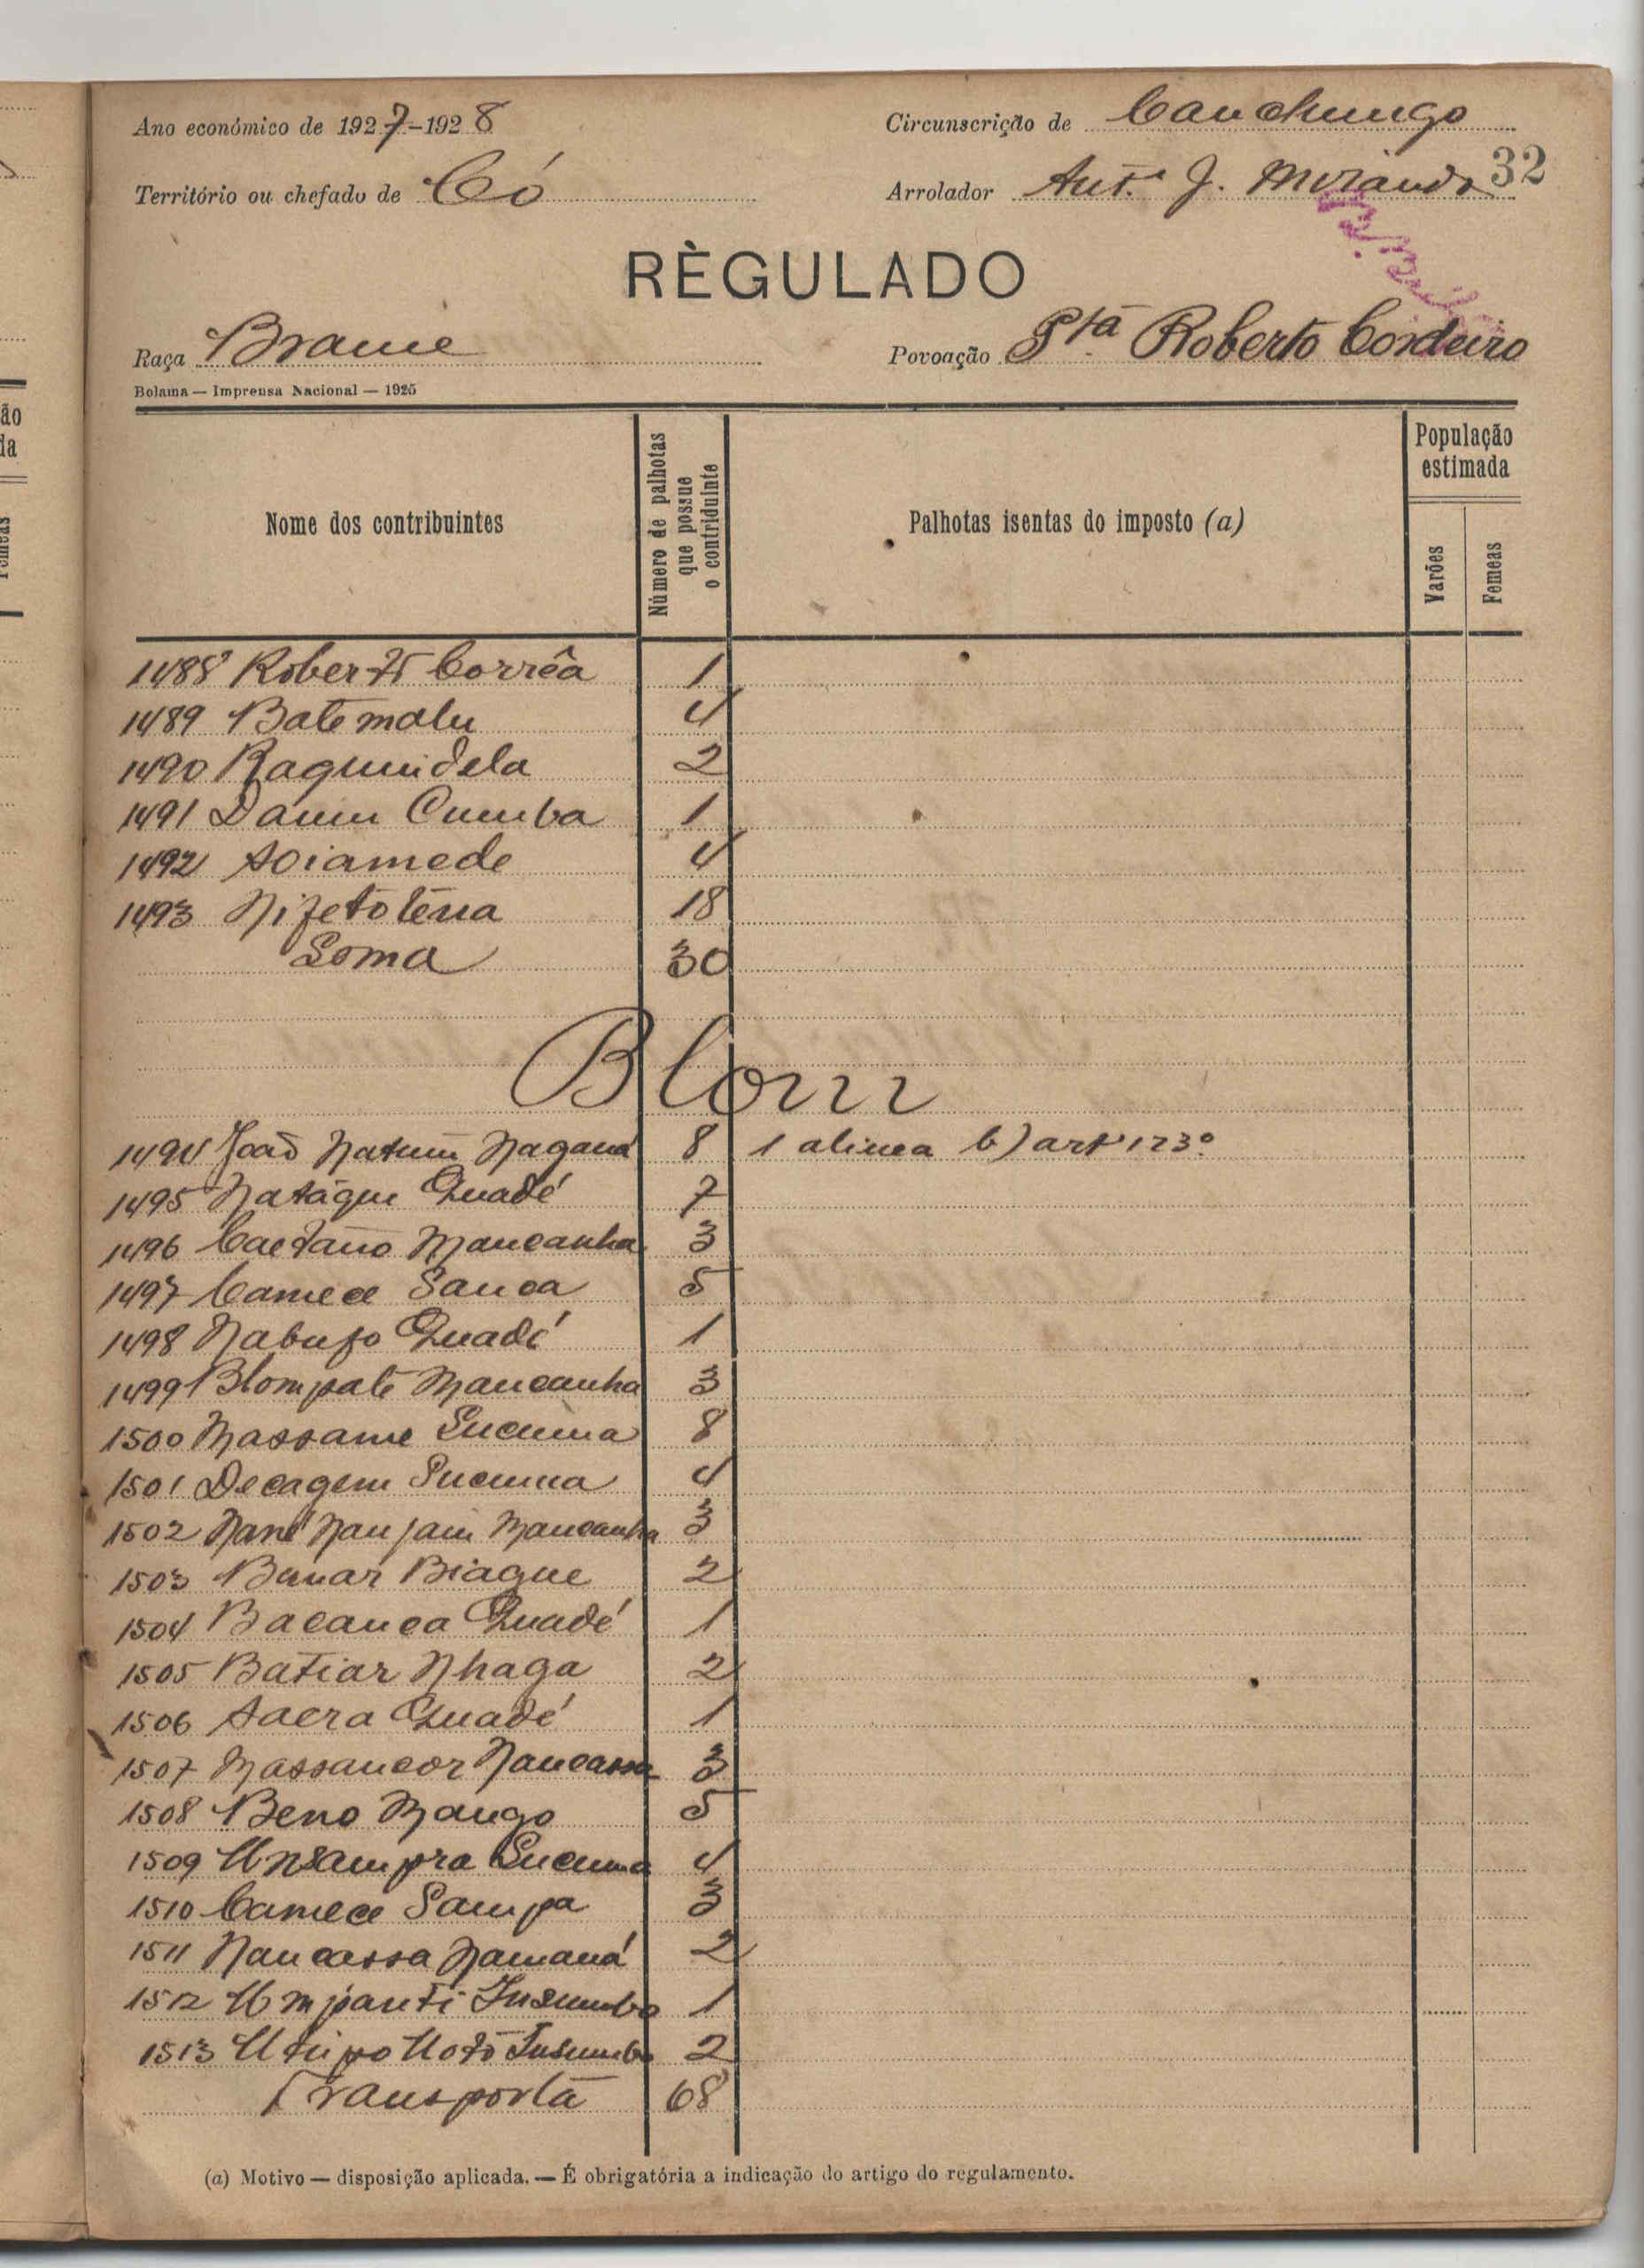 Ano económico de 1927-1928
Circunscrição de Canchungo
32
Território ou chefado de Có
Arrolador Antº J. Miranda
RÈGULADO
Raça Brame
Povoação Pta Roberto Cordeiro
Bolama — Imprensa Nacional — 1925
Nome dos contribuintes
Número de palhotas que possue o contriduinte
Palhotas isentas do imposto (a)
População estimada
Varões
Femeas
1488 Roberto Corrêa 1
1489 Batemalu 4
1490 2
1491 Daun Cumba 1
1492 4
1493 18
Soma 30
Blom
1494 João Natum Nagana 8 1 alinea b) art 123º
1495 Natáque Quadé 7
1496 Caetano Mancanha 3
1497 Camece Sanca 5
1498 Nabufo Quadé 1
1499 Blompate Mancanha 3
1500 Massame Sucuma 8
1501 Decagem Sucuma 4
1502 Nané Nanjam Mancanha 3
1503 Banar Biague 2
1504 Bacanca Quadé 1
1505 Batiar Nhaga 2
1506 Sacra Quadé 1
1507 Massancor Nancassa 3
1508 Beno Mango 5
1509 Unsampra Sucuma 4
1510 Camece Sampa 3
1511 Nancassa Namaná 2
1512 Umpanti Insumbo 1
1513 Insumbo 2
Transporta 68
(a) Motivo — disposição aplicada. — É obrigatória a indicação do artigo do regulamento.